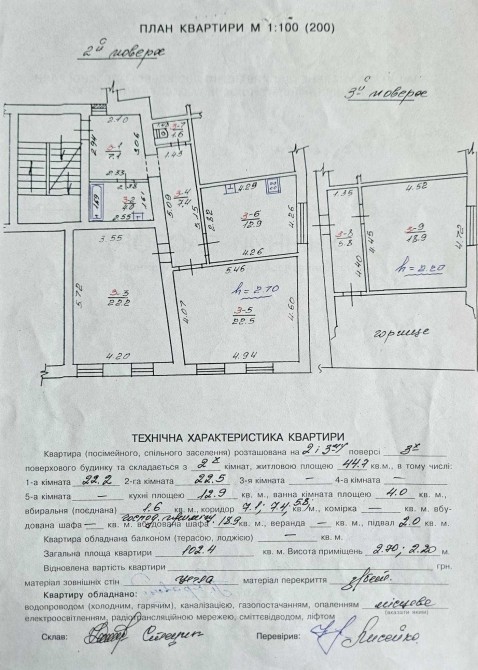 ПЛАН КВАРТИРИ М 1:100 (200)
2й поверх
3й поверх
2.10
2.94
3-1
7.1
3.06
3-7
1.6
1.43
2.33
2.38
1.69
3-2
4.0
1.61
2.55
3-4
7.4
5.09
5.15
2.82
4.29
3-6
12.9
4.26
4.26
3.55
5.72
3-3
22.2
4.20
5.46
h = 2.70
4.07
3-5
22.5
4.60
4.94
1.35
3-8
5.8
4.40
4.52
4.45
3-9
18.9
4.22
h = 2.20
горище
ТЕХНІЧНА ХАРАКТЕРИСТИКА КВАРТИРИ
Квартира (посімейного, спільного заселення) розташована на 2 і 3му поверсі 3х
поверхового будинку та складається з 2х кімнат, житловою площею 44.7 кв.м., в тому числі:
1-а кімната 22.2 2-га кімната 22.5 3-я кімната — 4-а кімната —
5-а кімната — кухні площею 12.9 кв. м., ванна кімната площею 4.0 кв. м.,
вбиральня (поєднана) 1.6 кв. м., коридор 7.1; 7.4 5.8 кв. м., комірка — кв. м. вбу-
дована шафа — кв. м. вбудована шафа 18.9 кв. м., веранда — кв. м., підвал 2.0 кв. м.
Квартира обладнана балконом (терасою, лоджією) — кв. м.
Загальна площа квартири 102.4 кв. м. Висота приміщень 2.70; 2.20 м.
Відновлена вартість квартири грн.
матеріал зовнішніх стін цегла матеріал перекриття
Квартиру обладнано:
водопроводом (холодним, гарячим), каналізацією, газопостачанням, опаленням місцеве
(вказати яким)
електроосвітленням, радіотрансляційною мережею, сміттєвідводом, ліфтом
Склав: Перевірив: